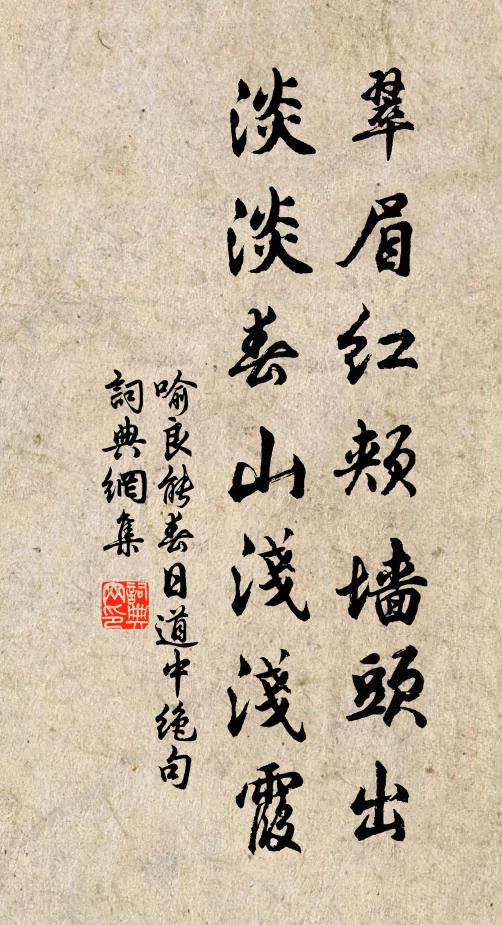 翠眉红頰墙頭出
淡淡春山淺淺霞
喻良能春日道中绝句
詞典網集
詞典網印